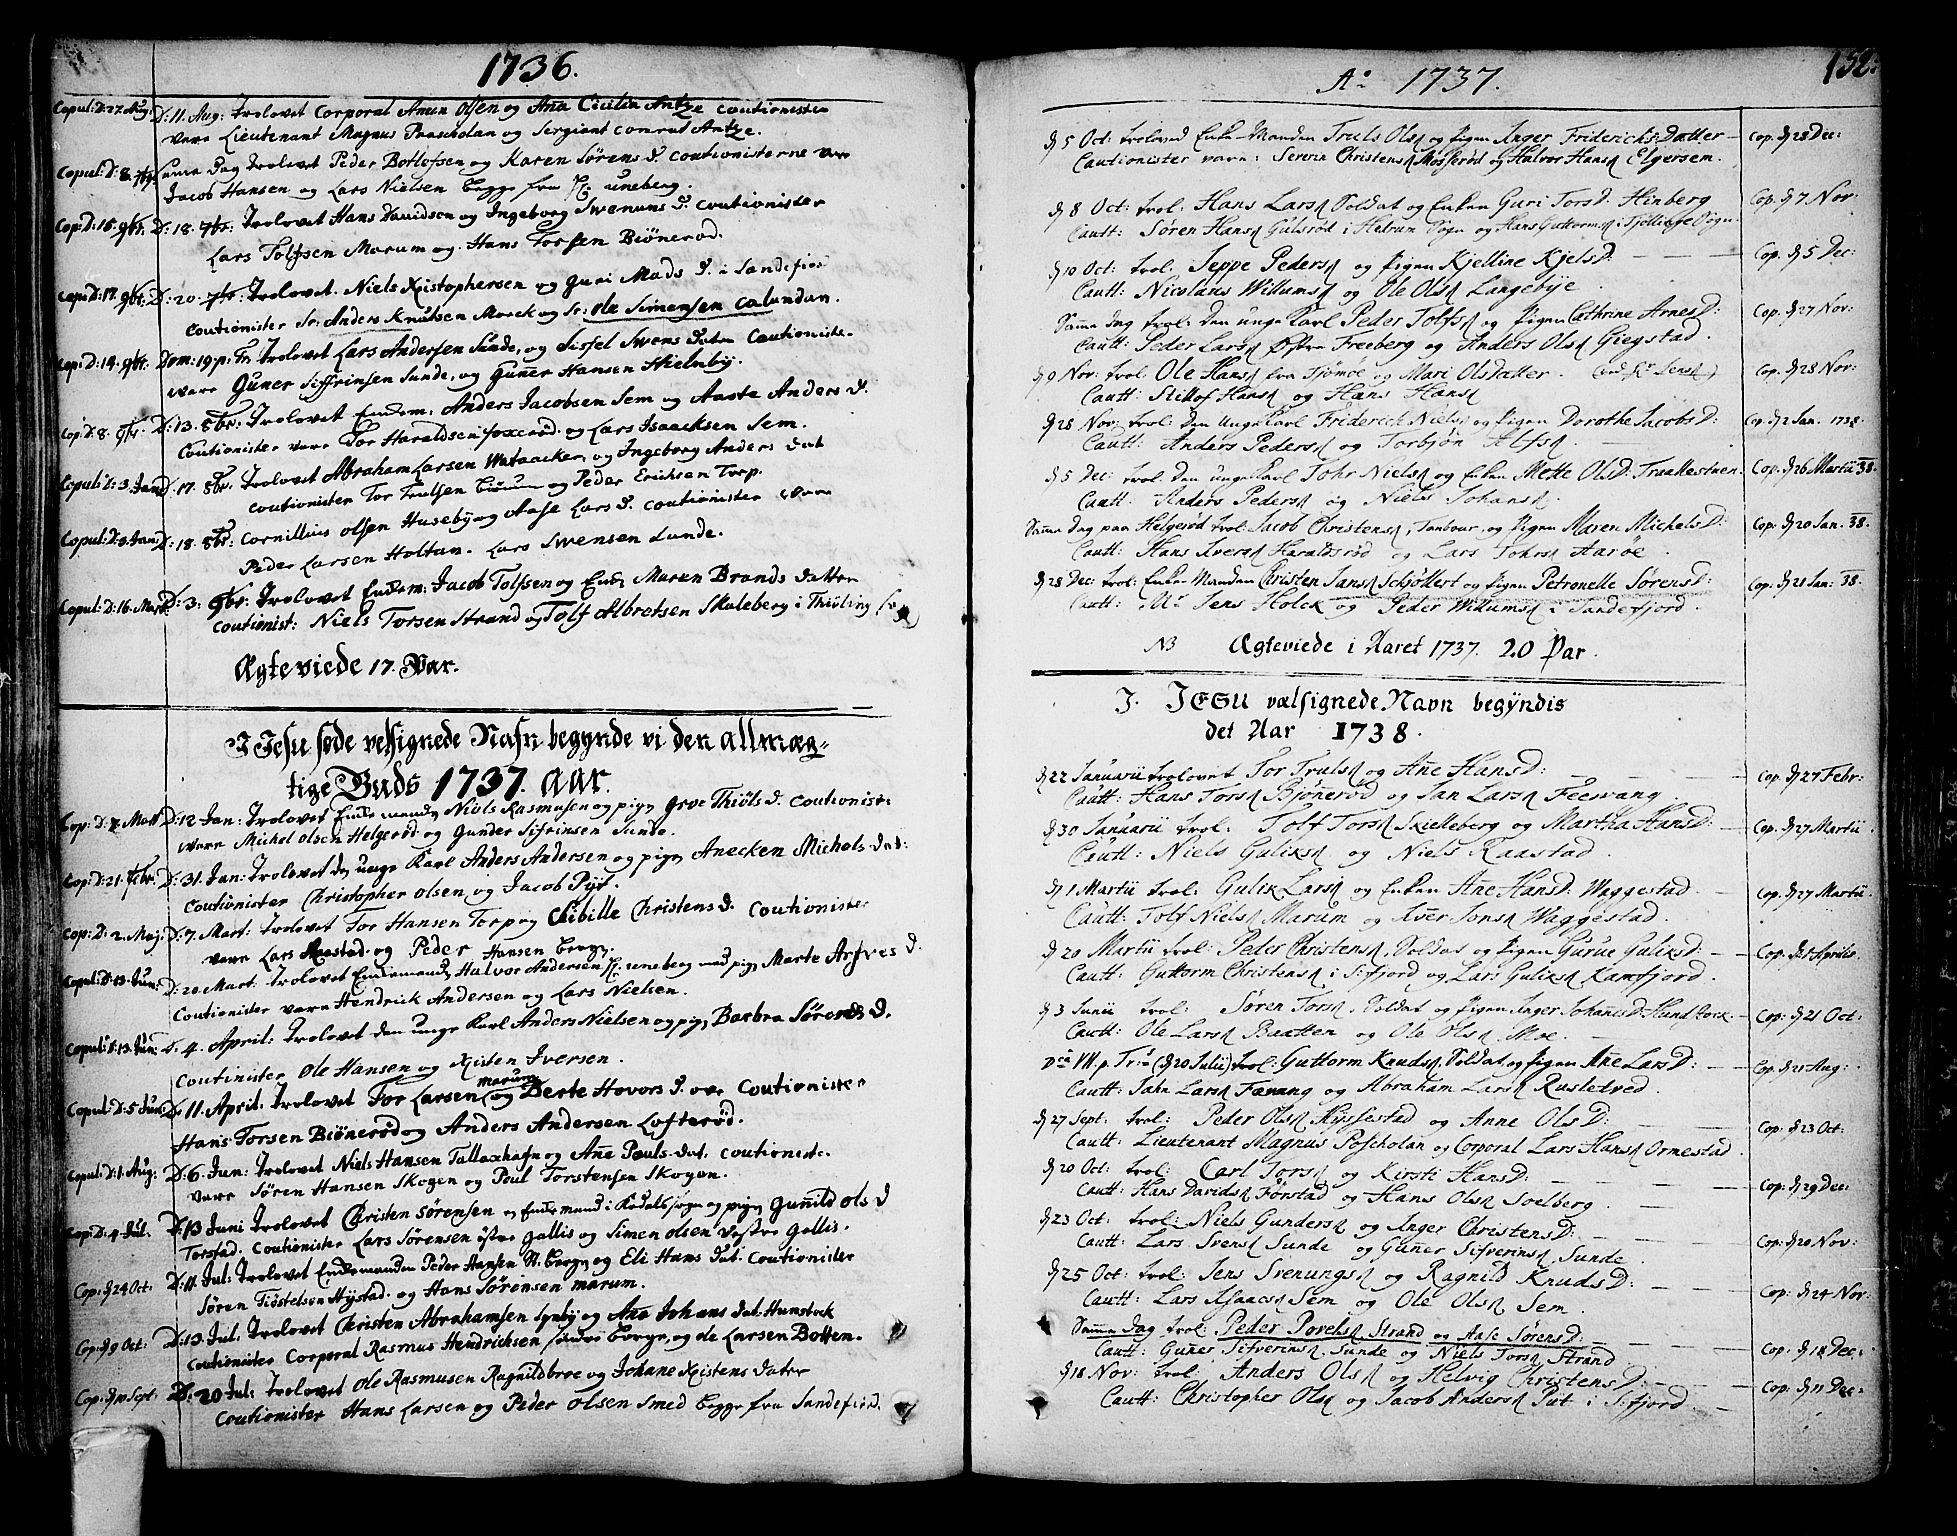 1736.
Copul: D: 27. Aug: D: 11. Aug: Trolovet Corporal Amun Olsen og Ana Cicilia Antze Coutionister
vare Lieutenant Magnus Prascholan og Sergiant Conrad Antze.
Copul: D: 8. 9br. Same Dag Trolovet Peder Botlofsen og Karen Sørens D. Coutionisterne var
Jacob Hansen og Lars Nielsen begge fra uneberg.
Cop: D: 15. 9br. D: 18. 7br: Trolovet Hans Davidsen og Ingeborg Swenuns D. Coutionister
Lars Tolfsen Marum og Hans Torsen Biönerød.
Cop: D: 17. 9br. D: 20. 7br: Trolovet Niels Xistophersen og Guri Mads D. i Sandefior
Coutionister Sr: Anders Knutsen Morck og Sr: Ole Simensen Calundan.
Cop: D: 14. 9br. Dom: 19 p. Tr: Trolovet Lars Andersen Sunde, og Sissel Swens Dater Coutioniste.
vare Guner Siffrinsen Sunde, og Guner Hansen Hielmby.
Cop: D. 8. 9br: D: 13. 8br: Trolovet Enckem: Anders Jacobsen Sem og Aaste Anders D.
Coutionister vare Tor Haraldsen foxerød og Lars Isaacksen Sem.
Copul: D: 3. Jan D: 17. 8br. Trolovet Abraham Larsen Wataacker, og Ingeborg Anders dat
Coutionister Tor Trulsen Biörum og Peder Ericksen Torp.
Copul: D: 3. Jan: D: 18. 8br: Cornillius Olsen Huseby og Aase Lars D. Coutionister vare
Peder Larsen Holtan. Lars Swensen Lunde.
Copul: D: 16. Mart. D: 3. 9br: Trolovet Enckem: Jacob Tolfsen og Enck: Maren Brands datter
Coutionist: Niels Torsen Strand og Tolf Albretsen Skaleberg i Thiöling
Ægteviede 17. Par.
I Jesu søde velsignede Nafn begynde vi den allmæg-
tige Guds 1737. aar.
Cop: D. 7. Mart D: 12 Jan: Trolovet Enckemanden Niels Rasmusen og pig Thiöls D. Coutionist:
vare Michel Olsen Helgerød og Gunder Sifrinsen Sunde.
Cop: D: 21. febr. D: 31. Jan: Trolovet den unge Karl Anders Andersen og pig Anecken Michels dat:
Coutionister Christopher Olsen og Jacob Pyt.
Cop: D: 2. Maj. D: 7. Mart: Trolovet Tor Hansen Torp og Sibille Christens D. Coutionister
vare Lars Raastad og Peder Hansen Bergn.
Copul: D. 13. Jun: D: 20. Mart. Trolovet Enckemand Halvor Andersen uneberg med pig Marte Arfves D.
Coutionister vare Hendrick Andersen og Lars Nielsen.
Copul: D. 13. Jun: D. 4. April: Trolovet den unge Karl Anders Nielsen og pig Barbra Sørens D.
Coutinister Ole Hansen og Xisten Iversen.
Copul: D: 5. Jun: D: 11. April: Trolovet Tor Larsen marum og Berte Hovors D. Coutionister
Hans Torsen Biönerød og Anders Andersen Lofterød.
Copul: D: 1. Aug: D: 6. Jun: Trolovet Niels Hansen Tallaxhafn og Ane Pouls dat. Coutioniste.
vare Søren Hansen Skogen og Poul Torstensen Skogen.
Cop: D: 4. Jul. D: 13 Juni Trolovet Christen Sørensen en Enckemand i sogn og pign Gunnild Ols D
Torstad. Coutionister Lars Sørensen østre gallis og Simen Olsen vestre Gallis.
Cop: d 24 Oct: D: 11. Jul: Trolovet Enckemanden Peder Hansen N: bergn og Eli Hans Dat. Coutionister
Søren Tiöstelsen Hystad og Hans Sørensen marum.
Cop: d 9 Oct: D: 13. Jul. Trolovet Christen Abrahamsen Lynby og Ane Johans dat. Hunstock
Coutionister Corporal Rasmus Hendricksen søndre bergn, og Ole Larsen Botten.
Cop: d 10 Sept: D: 20 Jul: Trolovet Ole Rasmusen Ragnildbroe og Johane Xistens Dater
Coutionister Hans Larsen og Peder Olsen Smed begge fra Sandefiord.
152:
A° 1737.
d 5 Oct: troloved Enke-Manden Truls Ols og Pigen Inger Friderichs-Datter Cop. d 28 Dec:
Cautionister vare: Severin Christens Mosserød og Halvor Hans Elgersem.
d 8 Oct: trol: Hans Lars Soldat og Enken Guri Tors D. Hinberg Cop. d 7 Nov:
Cautt: Søren Hans Gulsrød i Hedrum Sogn og Hans Guttorms i Tjöllinge Sogn
d 10 Oct: trol: Jeppe Peders og Pigen Kjelline Kjels D. Cop. d 5 Dec:
Cautt: Nicolaus Willums og Ole Ols Langebye.
Samme Dag trol: den unge Karl Peder Tolfs og Pigen Cathrine Arnes D: Cop: d 27 Nov:
Cautt: Peder Lars Østre Freeberg og Anders Ols Giegstad.
d 9 Nov: trol: Ole Hans fra Tjømøe og Mari Olsdatter. Cop: d 28 Nov:
Cautt: Stillof Hans og Hans Hans
d 28 Nov: trol: den Unge Karl Friderich Niels og Pigen Dorothe Jacobs D: Cop: d 2 Jan. 1738.
Cautt: Anders Peders og Torbjøn Tolfs.
d 5 Dec: trol: den unge Karl Johr Niels og Enken Mette Ols D: Traallestuen. Cop. d 26 Martii 38.
Cautt: Anders Peders og Niels Johans.
Samme Dag paa Helgerød trol: Jacob Christens, Tambour, og Pigen Maren Michels D: Cop: d 20 Jan. 38.
Cautt: Hans Ivers Haraldsrød og Lars Johrs Aarøe.
d 28 Dec: trol: Enke Manden Christen Jans Schjøttert og Pigen Petronelle Sørens D: Cop: d 21 Jan: 38.
Cautt: Mr Jens Holck og Peder Willums i Sandefjord.
NB Ægteviede i Aaret 1737. 20 Par.
I. JESU velsignede Navn begyndis
det Aar 1738.
d 22 Januarii trolovet Tor Truls og Ane Hans D: Cop: d 27 Febr:
Cautt: Hans Tors Bjønerød og Jan Lars Feevang.
d 30 Januarii trol: Tolf Tors Skielleberg og Martha Hans D: Cop: d 27 Martii
Cautt: Niels Guliks og Niels Raastad.
d 1 Martii trol: Gulik Lars og Enken Ane Hans D: Weggestad. Cop: d 27 Martii
Cautt: Tolf Niels Marum og Iver Jons Weggestad.
d 20 Martii trol: Peder Christens, Soldat og Pigen Gurue Guliks D: Cop: d 8 Aprilis
Cautt: Guttorm Christens i S:fjord og Lars Guliks Kamfjord.
d 3 Junii trol: Søren Tors, Soldat og Pigen Inger Johannes D: Hunstock Cop: d 21 Oct:
Cautt: Ole Lars Baatten og Ole Ols Moe.
Dca VII. p. Tr: (d 20 Julii) trol: Guttorm Knuds, Soldat, og Pigen Ane Lars D: Cop: d 21 Aug:
Cautt: Jahn Lars Fævang og Abraham Lars Rusletved.
d 27 Sept: trol: Peder Ols Hyssestad og Anne Ols D: Cop: d 23 Oct:
Cautt: Lieutenant Magnus Poscholan og Corporal Lars Hans Ormestad.
d 20 Oct: trol: Carl Tors og Kirsti Hans D: Cop: d 29 Dec:
Cautt: Hans Davids Førstad og Hans Ols Soelberg.
d 23 Oct: trol: Niels Gunders og Inger Christens D: Cop: d 20 Nov:
Cautt: Lars Svens Sunde og Guner Sifverins Sunde.
d 25 Oct: trol: Jens Svenungs og Ragnild Knuds D: Cop: d 24 Nov:
Cautt: Lars Isaacs Sem og Ole Ols Sem.
Samme Dag trol: Peder Povels Strand og Aase Sørens D: Cop: d 18 Dec:
Cautt: Guner Sifverins Sunde og Niels Tors Strand
d 18 Nov: trol: Anders Ols og Helvig Christens D: Cop: d 11 Dec:
Cautt: Christopher Ols og Jacob Anders Put i S:fjord.